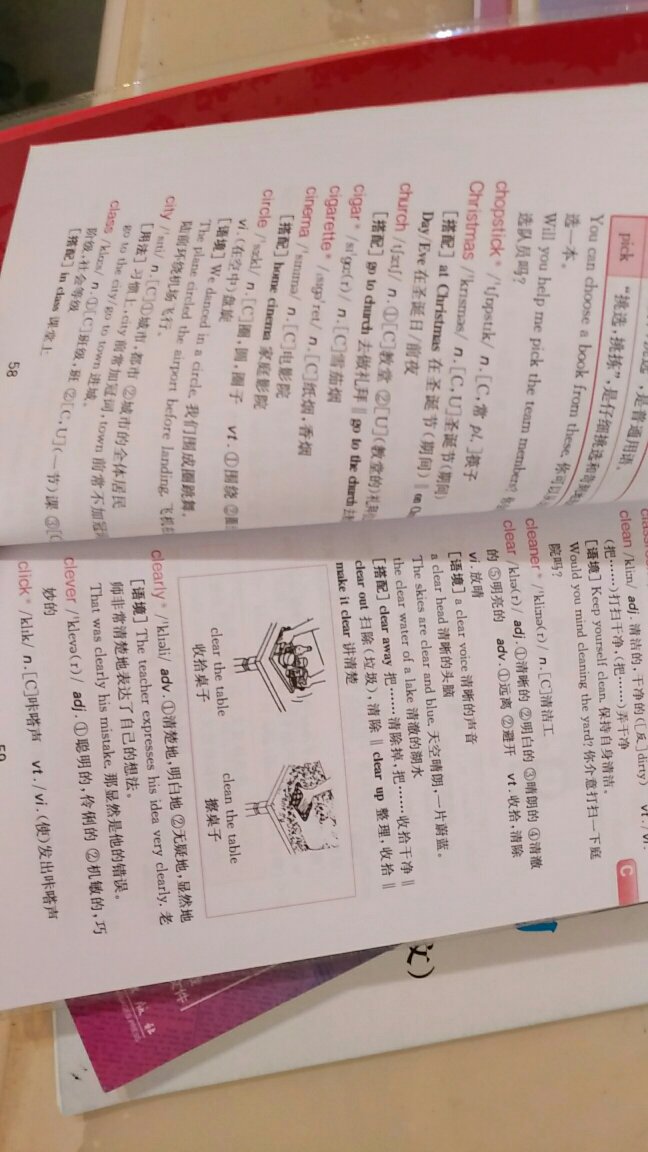 pick
“挑选，挑拣”，是仔细挑选和
是普通用语
You can choose a book from these. 你可以
选一本。
Will you help me pick the team members?
选队员吗？
chopstick* /'tʃɒpstɪk/ n. [C, 常 pl.]筷子
Christmas /'krɪsməs/ n. [C, U]圣诞节(期间)
[搭配] at Christmas 在圣诞节(期间) ‖ on
Day/Eve 在圣诞日/前夜
church /tʃɜːtʃ/ n. ①[C]教堂 ②[U](教堂的)
[搭配] go to church 去做礼拜 ‖ go to the church
cigar* /sɪ'ɡɑː(r)/ n. [C]雪茄烟
cigarette* /ˌsɪɡə'ret/ n. [C]纸烟，香烟
cinema /'sɪnəmə/ n. [C]电影院
[搭配] home cinema 家庭影院
circle /'sɜːkl/ n. [C]圈，圆，圈子 vt. ①围绕 ②
vi. (在空中)盘旋
[语境] We danced in a circle. 我们围成圈跳舞。
The plane circled the airport before landing. 飞机
陆前环绕机场飞行。
city /'sɪti/ n. [C]①城市，都市 ②城市的全体居民
[用法] 习惯上，city 前常加冠词，town 前常不加冠
go to the city/go to town 进城。
class /klɑːs/ n. ①[C]班级，班 ②[C, U](一节)课 ③[C]
阶级，社会等级
[搭配] in class 课堂上
58
clean /kliːn/ adj. 清洁的，干净的([反]dirty) vt./vi.
(把……)打扫干净，(把……)弄干净
[语境] Keep yourself clean. 保持自身清洁。
Would you mind cleaning the yard? 你介意打扫一下庭
院吗？
cleaner* /'kliːnə(r)/ n. [C]清洁工
clear /klɪə(r)/ adj. ①清晰的 ②明白的 ③晴朗的 ④清澈
的 ⑤明亮的 adv. ①远离 ②避开 vt. 收拾，清除
vi. 放晴
[语境] a clear voice 清晰的声音
a clear head 清晰的头脑
The skies are clear and blue. 天空晴朗，一片蔚蓝。
the clear water of a lake 清澈的湖水
[搭配] clear away 把……清除掉，把……收拾干净 ‖
clear out 扫除(垃圾)，清除 ‖ clear up 整理，收拾 ‖
make it clear 讲清楚
clear the table
收拾桌子
clean the table
擦桌子
clearly* /'klɪəli/ adv. ①清楚地，明白地 ②无疑地，显然地
[语境] The teacher expresses his idea very clearly. 老
师非常清楚地表达了自己的想法。
That was clearly his mistake. 那显然是他的错误。
clever /'klevə(r)/ adj. ①聪明的，伶俐的 ②机敏的，巧
妙的
click* /klɪk/ n. [C]咔嗒声 vt./vi. (使)发出咔嗒声
59
C
文)
文件